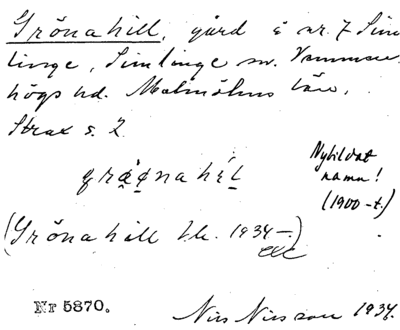 Grönahill, gård å nr. 7 Sim
linge, Simlinge sn. Vemmen
högs hd. Malmöhus län,
Strax s. 2.
Nybildat
namn!
(1900-t.)
(Grönahill Jb. 1934 –)
Nr 5870.
Nils Nilsson 1934.